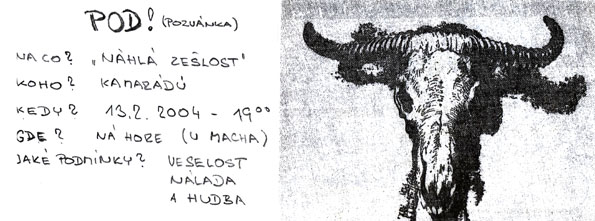 POD! (POZVÁNKA)
NA CO? „NÁHLÁ ZEŠLOST"
KOHO? KAMARÁDŮ
KEDY? 13.2.2004 - 19⁰⁰
GDE? NÁ HOŘE (U MACHA)
JAKÉ PODMÍNKY? VESELOST
NÁLADA
A HUDBA